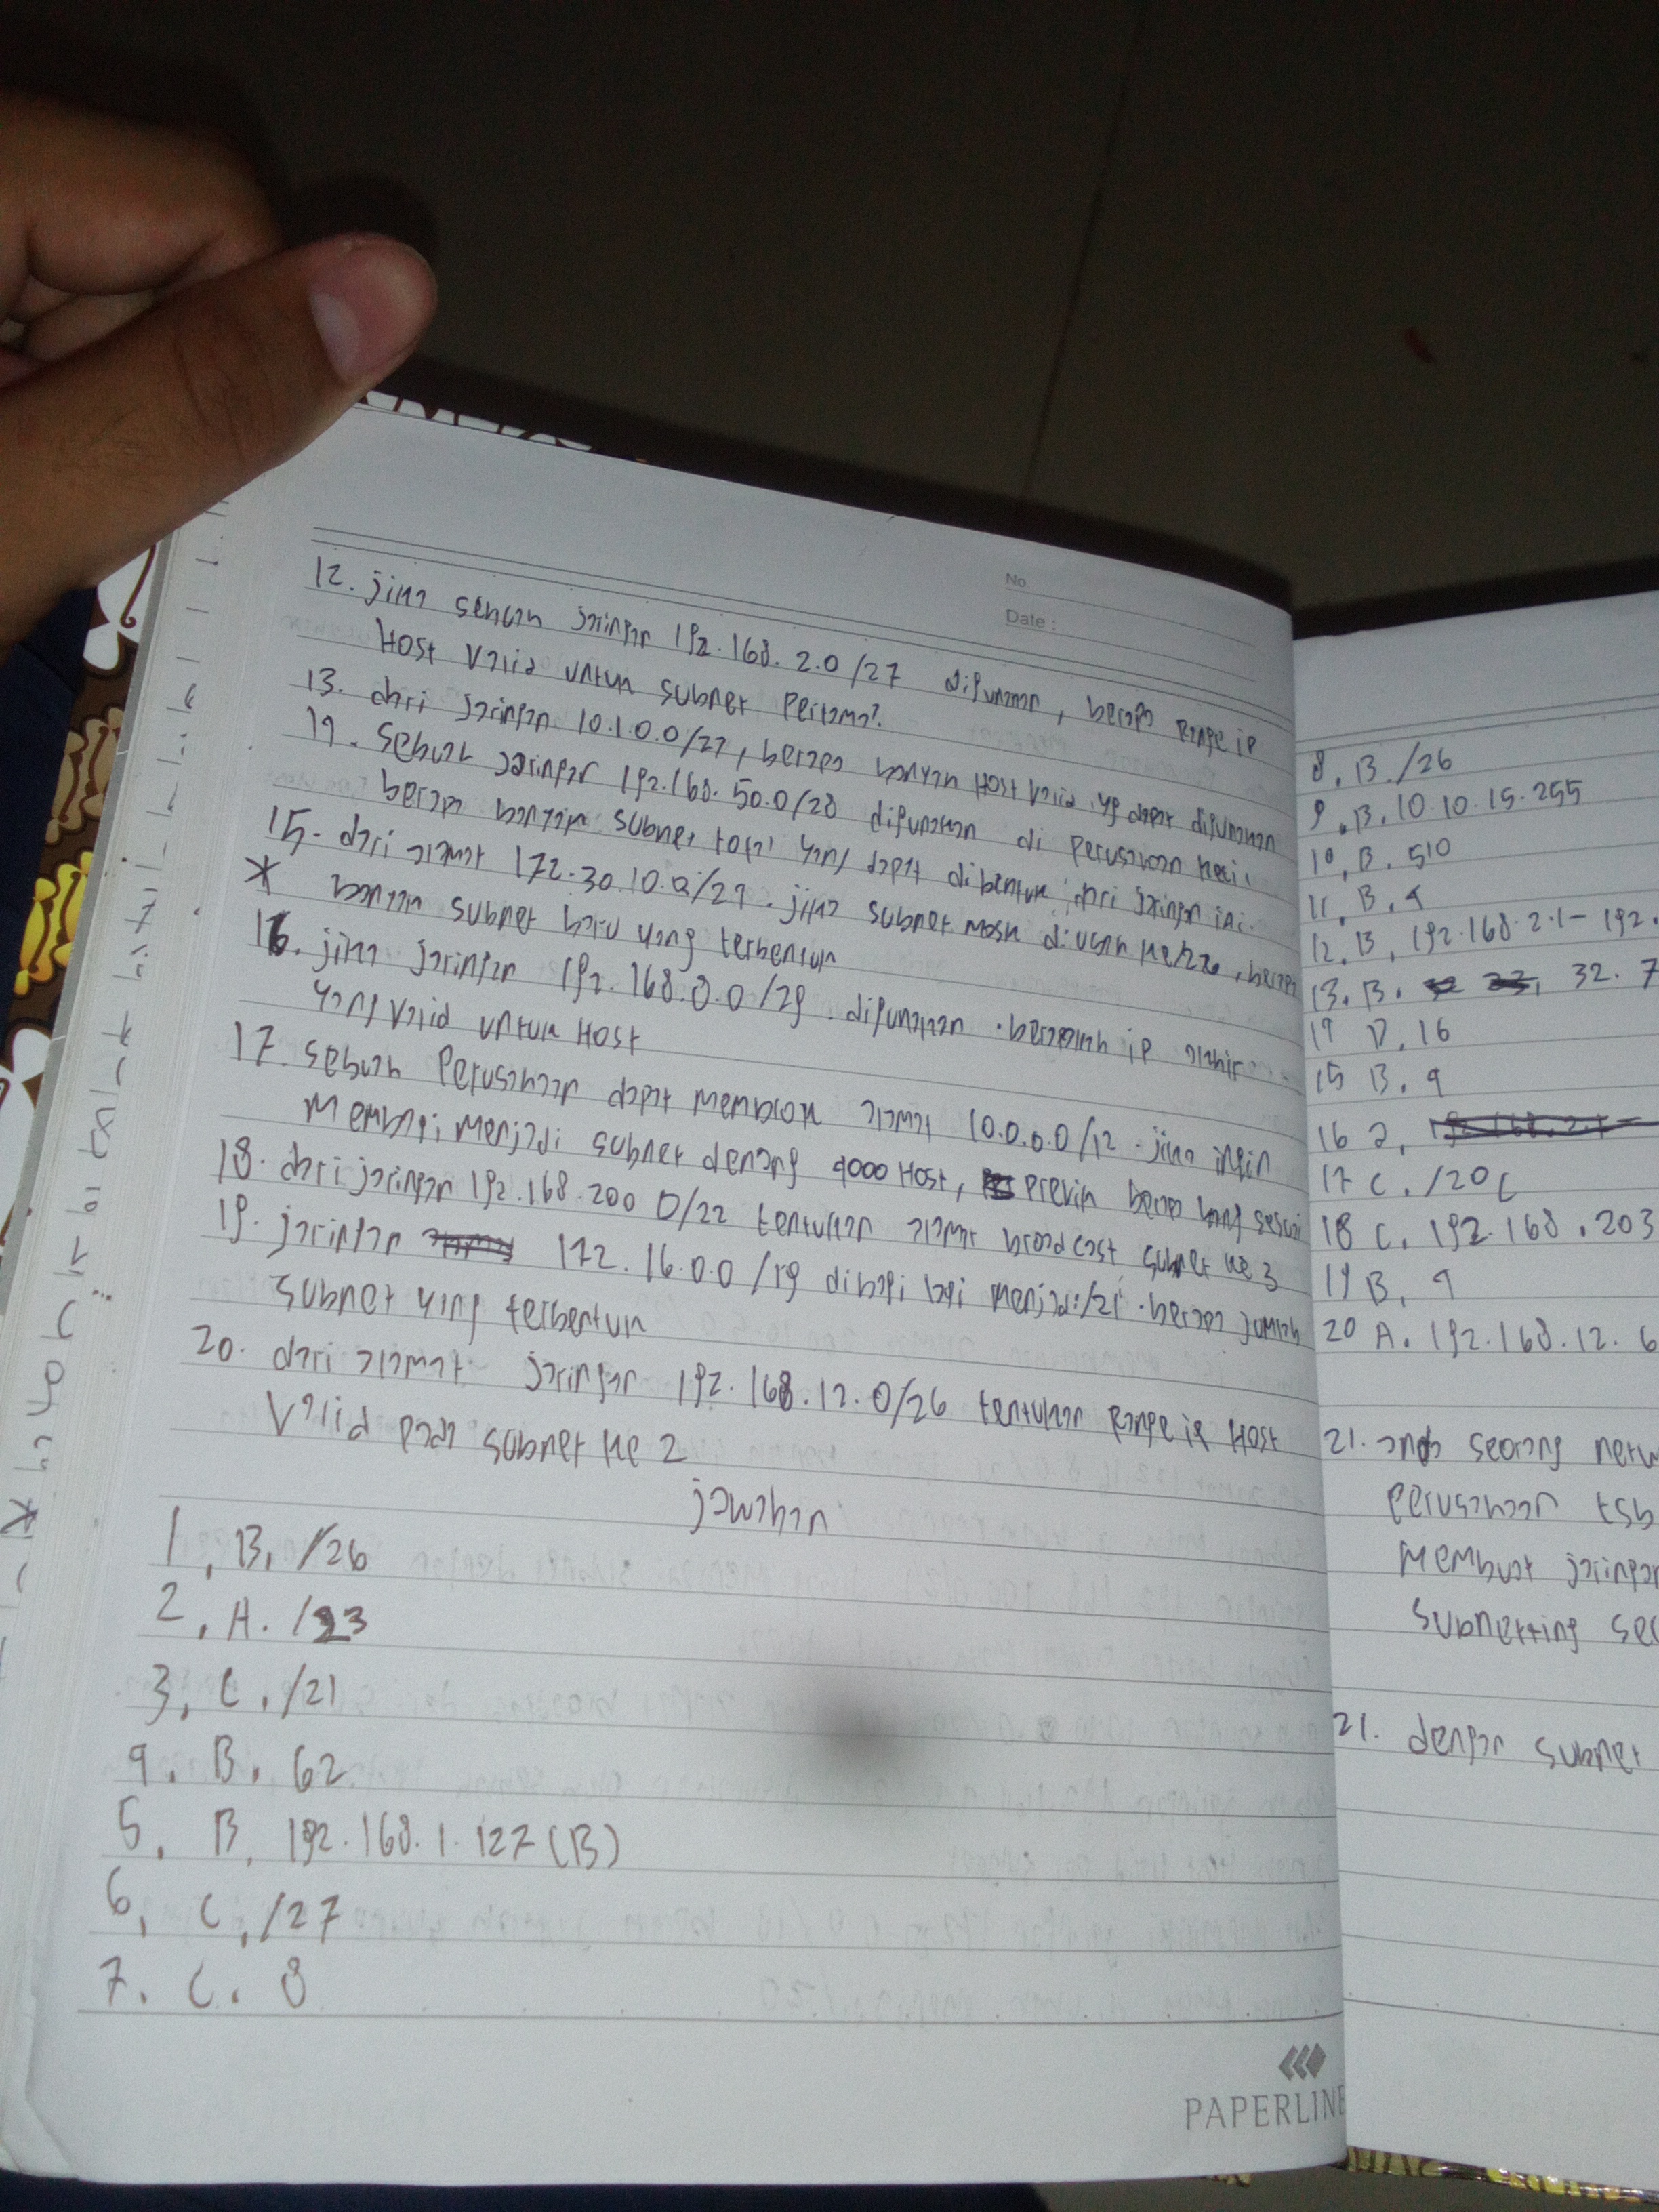 No
Date :
12. jika sebuah jaringan 192.168.2.0/27 digunakan, berapa Range ip
Host Valid untuk subnet Pertama?
13. dari jaringan 10.1.0.0/21, berapa banyak Host valid yg dapat digunakan
14. Sebuah jaringan 192.168.50.0/28 digunakan di perusahaan kecil
berapa banyak subnet total yang dapat dibentuk dari jaringan ini.
15. dari alamat 172.30.10.0/24. jika subnet mask diubah ke/26, berapa
* banyak subnet baru yang terbentuk
16. jika jaringan 192.168.8.0/29 digunakan. berapakah ip
yang valid untuk Host
17. Sebuah Perusahaan dapat memblok alamat 10.0.0.0/12. jika ingin
Membagi Menjadi subnet dengan 4000 Host, Prefix berapa yang sesuai
18. dari jaringan 192.168.200 0/22 tentukan alamat broadcast subnet ke 3
19. jaringan 172.16.0.0 /19 dibagi lagi menjadi/21. berapa jumlah
subnet yang terbentuk
20. dari alamat jaringan 192.168.12.0/26 tentukan Range ip Host
Valid pada subnet ke 2
jawaban
1, B, /26
2, A. /23
3, C, /21
4. B. 62
5, B, 192.168.1.127 (B)
6, C, /27
7. C. 8
PAPERLINE
8, B. /26
9, B, 10.10.15.255
10, B. 510
11, B, 4
12, B, 192.168.2.1 – 192.
13. B. 32.7
14 D, 16
15 B. 4
16 a,
17 C. /20 C
18 C. 192.168.203
19 B, 4
20 A. 192.168.12.6
21. anda seorang netw
perusahaan tsb
Membuat jaringan
subnetting sec
21. dengan subnet